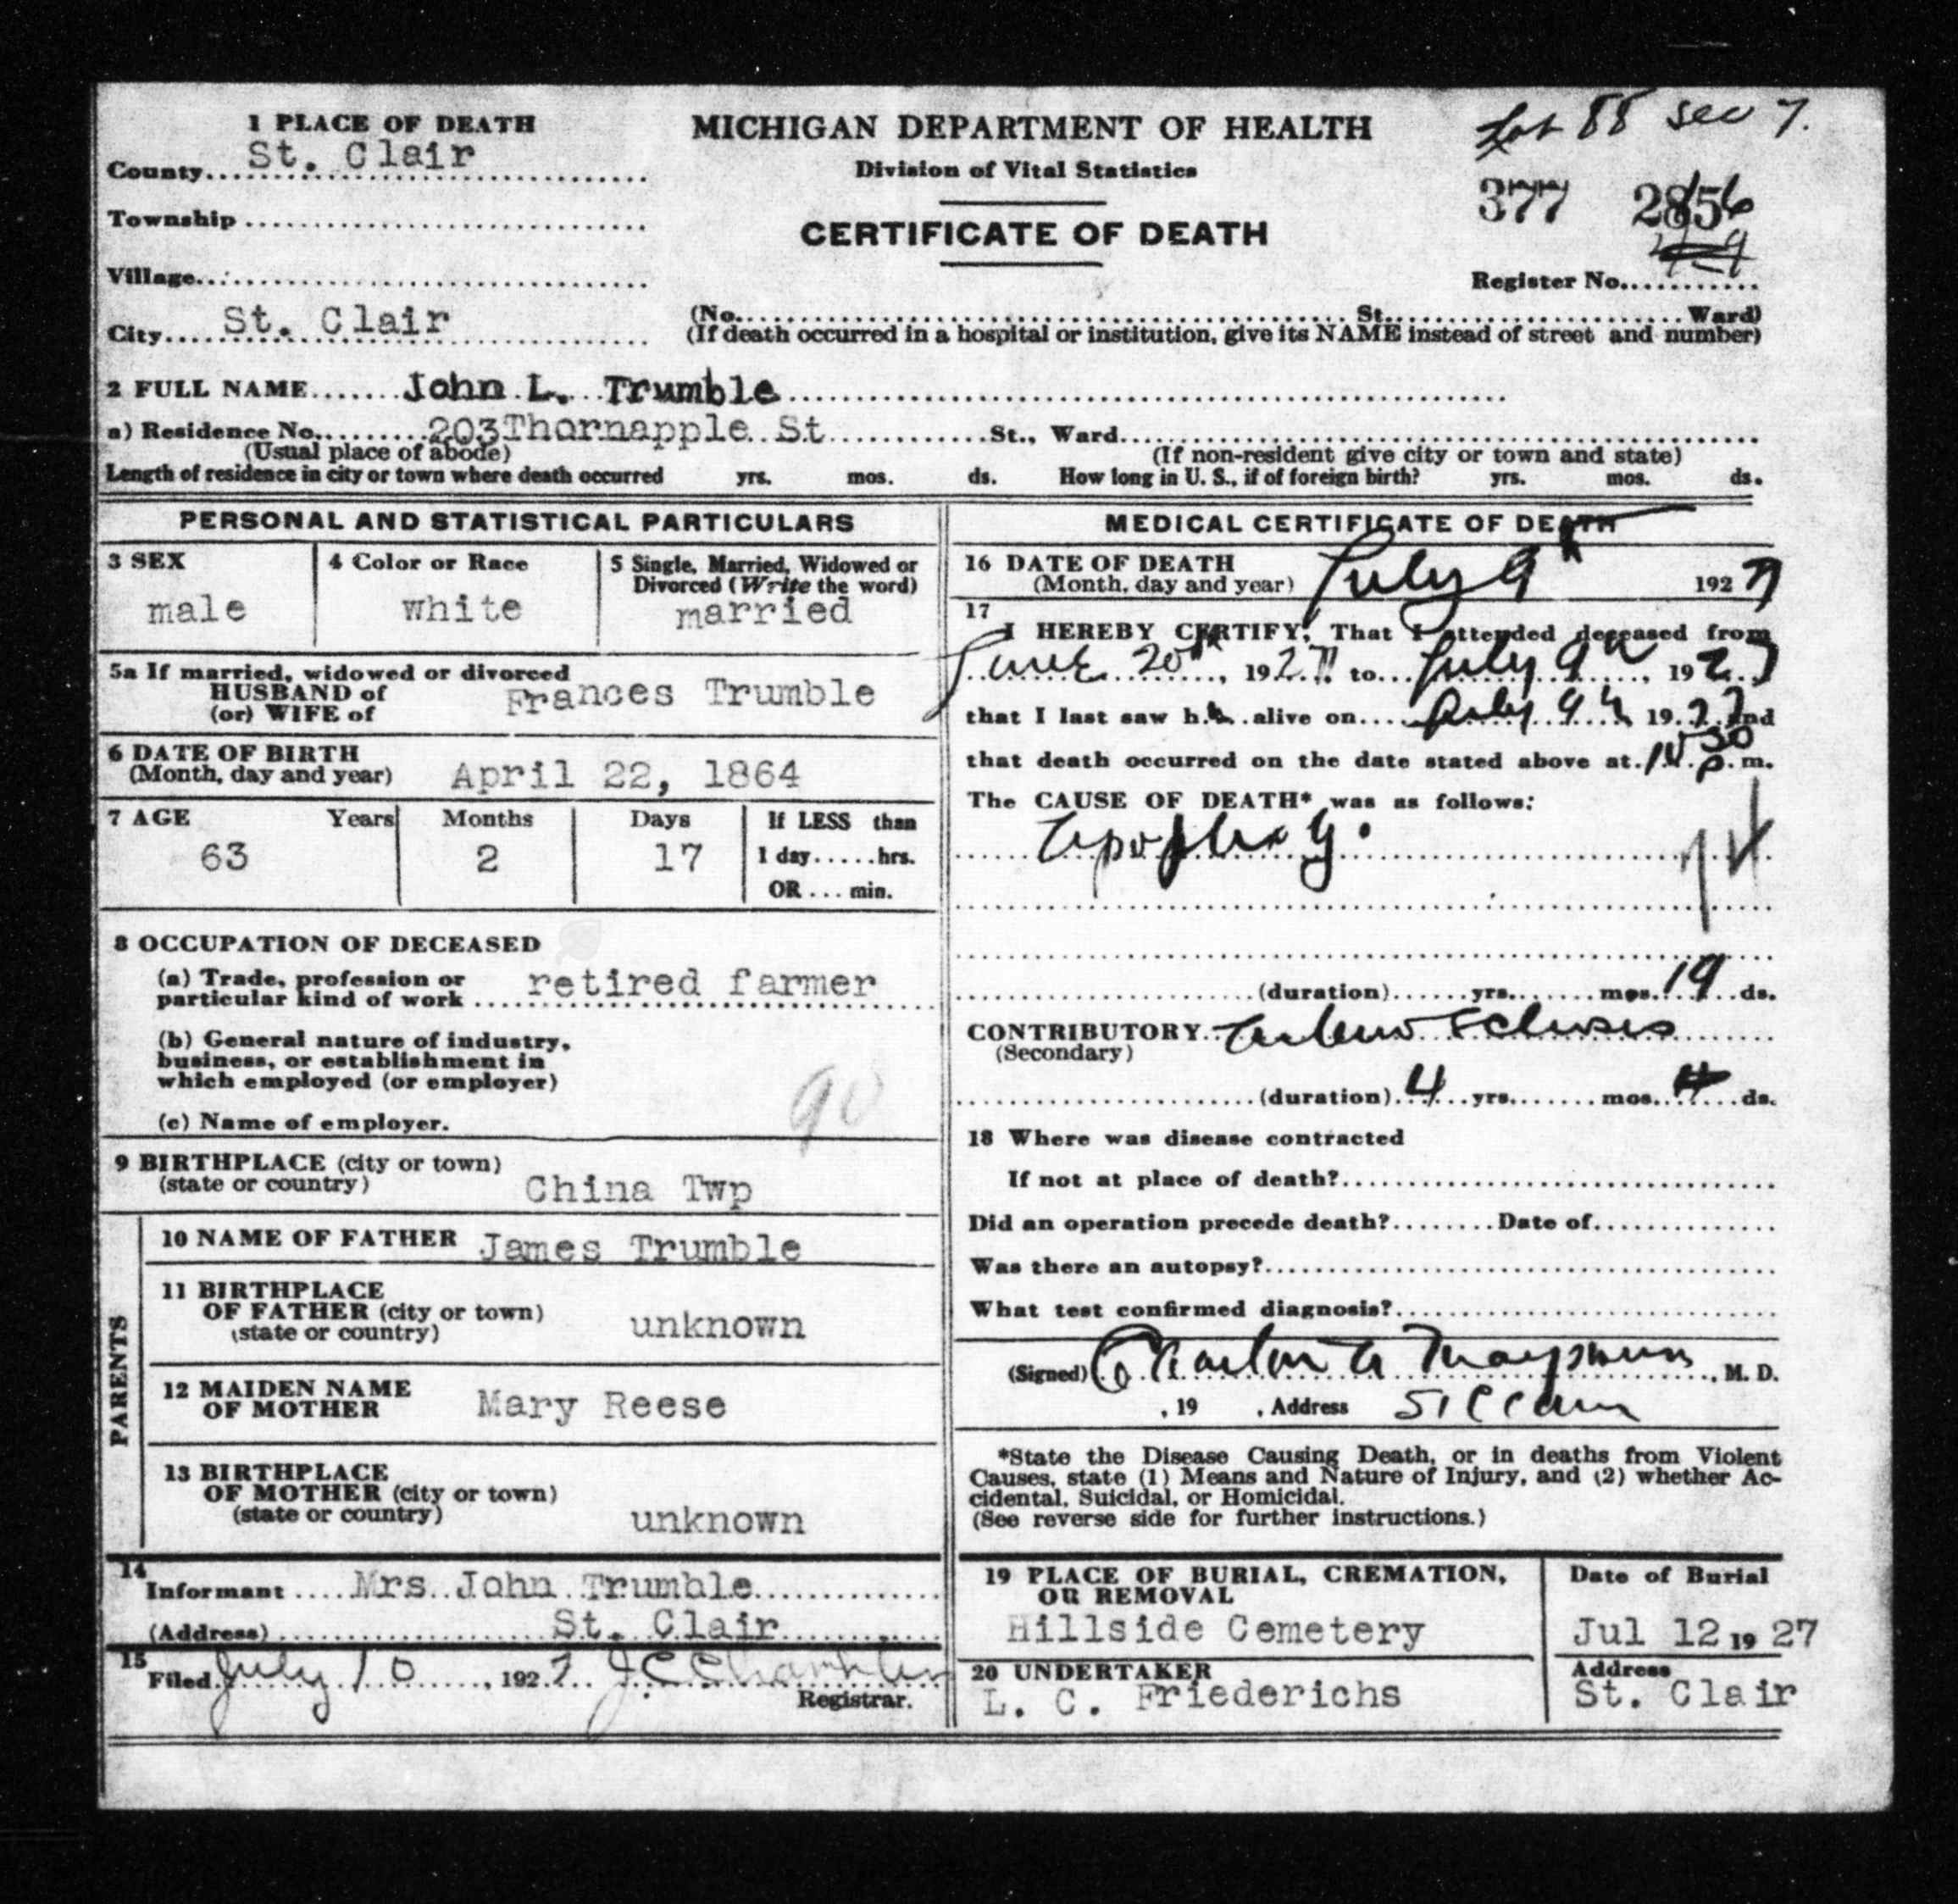 1 PLACE OF DEATH
County St. Clair
Township
Village
City St. Clair
MICHIGAN DEPARTMENT OF HEALTH
Division of Vital Statistics
CERTIFICATE OF DEATH
Lot 88 Sec 7.
377 2856
Register No.
(No. St. Ward)
(If death occurred in a hospital or institution, give its NAME instead of street and number)
2 FULL NAME John L. Trumble
a) Residence No. 203 Thornapple St St., Ward
(Usual place of abode) (If non-resident give city or town and state)
Length of residence in city or town where death occurred yrs. mos. ds. How long in U. S., if of foreign birth? yrs. mos. ds.
PERSONAL AND STATISTICAL PARTICULARS
3 SEX
male
4 Color or Race
white
5 Single, Married, Widowed or
Divorced (Write the word)
married
5a If married, widowed or divorced
HUSBAND of
(or) WIFE of
Frances Trumble
6 DATE OF BIRTH
(Month, day and year) April 22, 1864
7 AGE Years Months Days If LESS than
63 2 17 1 day......hrs.
OR ... min.
8 OCCUPATION OF DECEASED
(a) Trade, profession or
particular kind of work retired farmer
(b) General nature of industry,
business, or establishment in
which employed (or employer)
90
(c) Name of employer.
9 BIRTHPLACE (city or town)
(state or country) China Twp
PARENTS
10 NAME OF FATHER James Trumble
11 BIRTHPLACE
OF FATHER (city or town)
(state or country) unknown
12 MAIDEN NAME
OF MOTHER Mary Reese
13 BIRTHPLACE
OF MOTHER (city or town)
(state or country) unknown
14
Informant Mrs John Trumble
(Address) St. Clair
15
Filed July 10, 1927
Registrar.
MEDICAL CERTIFICATE OF DEATH
16 DATE OF DEATH
(Month, day and year) July 9th 1927
17
I HEREBY CERTIFY, That I attended deceased from
June 20th, 1927 to July 9th, 1927
that I last saw h alive on July 9th 1927 and
that death occurred on the date stated above at p.m.
The CAUSE OF DEATH* was as follows:
Apoplexy.
74
(duration) yrs. mos. 19 ds.
CONTRIBUTORY
(Secondary)
(duration) 4 yrs. mos. ds.
18 Where was disease contracted
If not at place of death?
Did an operation precede death? Date of
Was there an autopsy?
What test confirmed diagnosis?
(Signed) , M. D.
, 19 , Address St Clair
*State the Disease Causing Death, or in deaths from Violent
Causes, state (1) Means and Nature of Injury, and (2) whether Ac-
cidental, Suicidal, or Homicidal.
(See reverse side for further instructions.)
19 PLACE OF BURIAL, CREMATION,
OR REMOVAL
Hillside Cemetery
Date of Burial
Jul 12 1927
20 UNDERTAKER
L. C. Friederichs
Address
St. Clair